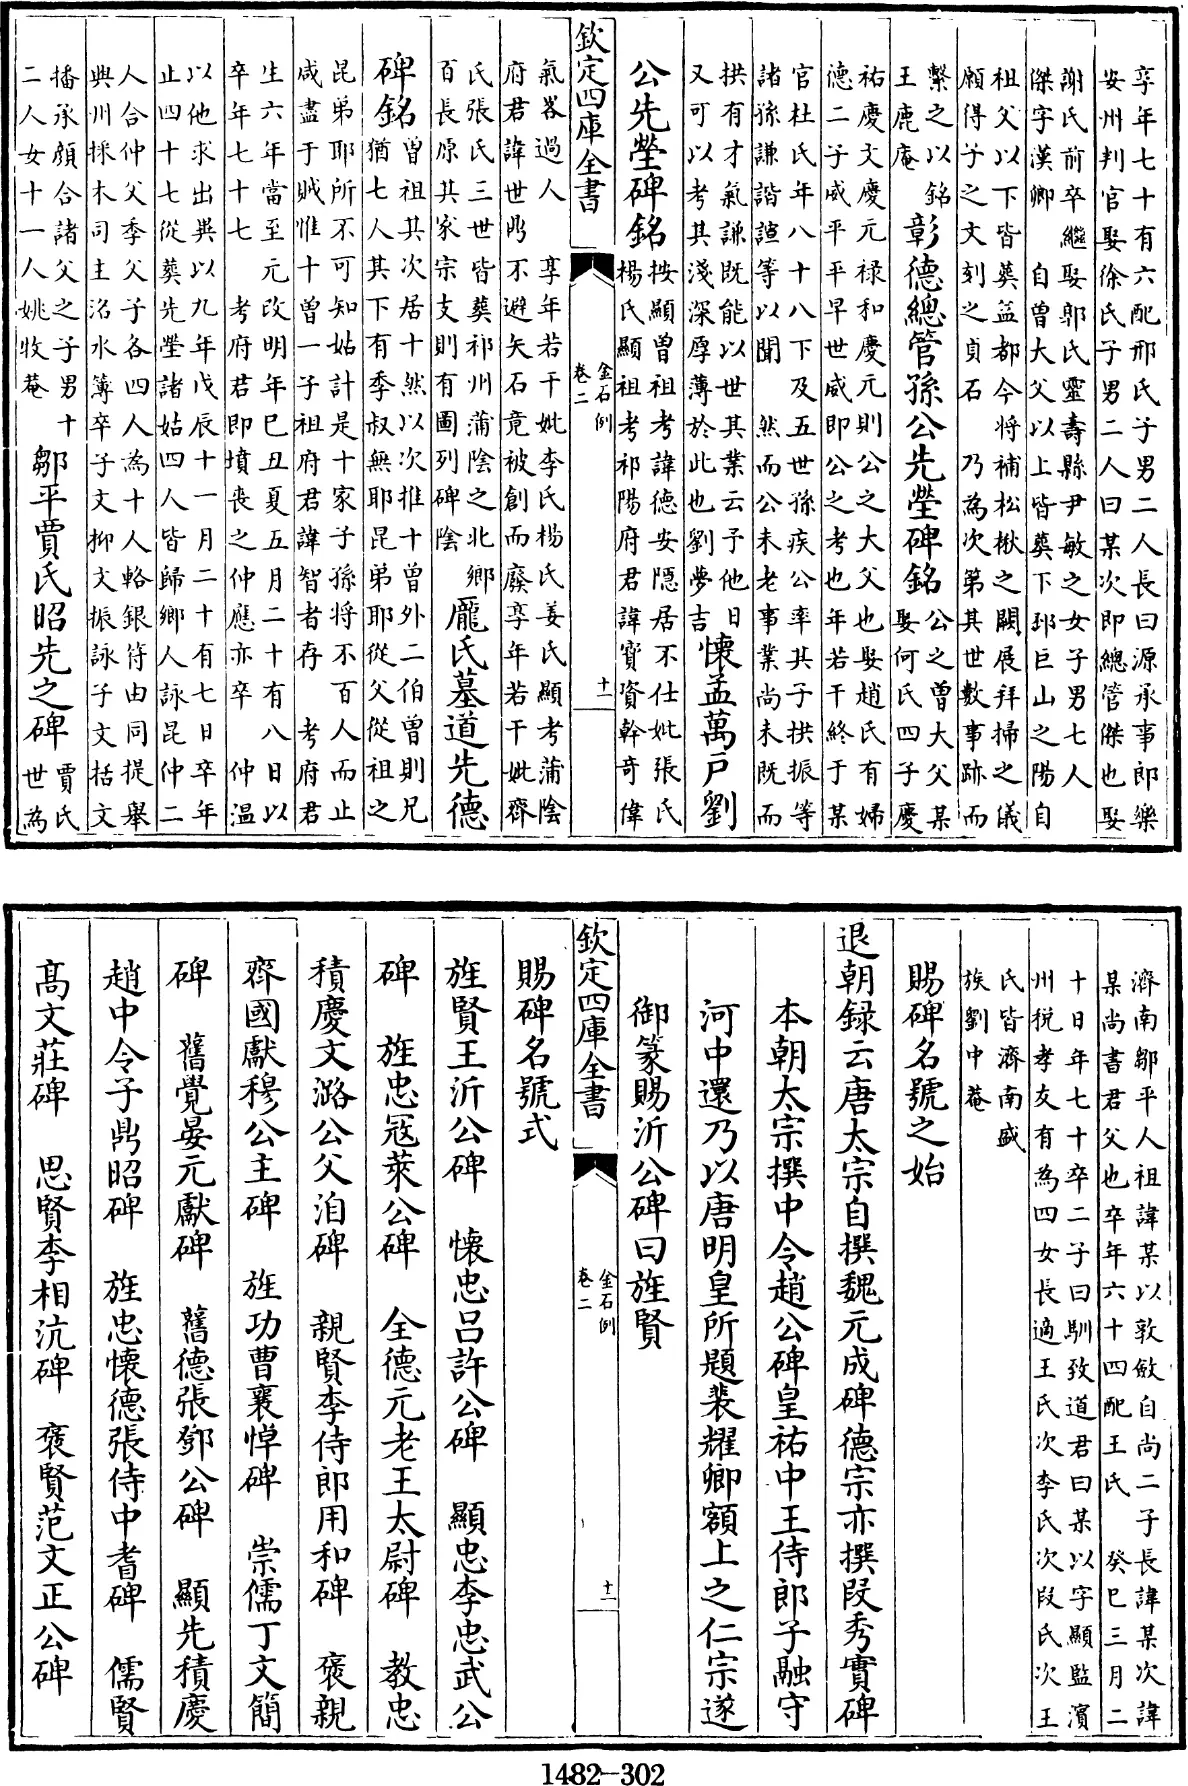 享年七十有六配邢氏子男二人長曰源承事郎樂
安州判官娶徐氏子男二人曰某次即總管傑也娶
謝氏前卒繼娶郭氏靈壽縣尹敏之女子男七人
傑字漢卿 自曾大父以上皆葬下邳巨山之陽自
祖父以下皆葬益都今將補松楸之闕展拜掃之儀
願得子之文刻之貞石 乃為次第其世數事跡而
繫之以銘
王鹿庵
彰德總管孫公先塋碑銘
公之曾大父某
娶何氏四子慶
祐慶文慶元禄和慶元則公之大父也娶趙氏有婦
德二子咸平平早世咸即公之考也年若干終于某
官杜氏年八十八下及五世孫疾公率其子拱振等
諸孫謙諧諠等以聞 然而公未老事業尚未既而
拱有才氣謙既能以世其業云予他日
又可以考其淺深厚薄於此也劉夢吉
懷孟萬戸劉
公先塋碑銘
按顯曾祖考諱德安隠居不仕妣張氏
楊氏顯祖考祁陽府君諱寶資幹奇偉
欽定四庫全書
金石例
卷二
十一
氣畧過人 享年若干妣李氏楊氏姜氏顯考蒲陰
府君諱世鼎不避矢石竟被創而廢享年若干妣齊
氏張氏三世皆葬祁州蒲陰之北鄉
百長原其家宗支則有圖列碑陰
龐氏墓道先德
碑銘
曾祖其次居十然以次推十曾外二伯曾則兄
猶七人其下有季叔無耶昆弟耶從父從祖之
昆弟耶所不可知姑計是十家子孫将不百人而止
咸盡于賊惟十曾一子祖府君諱智者存 考府君
生六年當至元改明年巳丑夏五月二十有八日以
卒年七十七 考府君即墳喪之仲應亦卒 仲溫
以他求出與以九年戊辰十一月二十有七日卒年
止四十七從葬先塋諸姑四人皆歸鄉人詠昆仲二
人合仲父季父子各四人為十人輅銀符由同提舉
興州採木司主洺水簿卒子文抑文振詠子文括文
播承顔合諸父之子男十
二人女十一人姚牧菴
鄒平賈氏昭先之碑
賈氏
世為
濟南鄒平人祖諱某以敦敏自尚二子長諱某次諱
某尚書君父也卒年六十四配王氏 癸巳三月二
十日年七十卒二子曰馴致道君曰某以字顯監濱
州税孝友有為四女長適王氏次李氏次段氏次王
氏皆濟南盛
族劉中菴
賜碑名號之始
退朝録云唐太宗自撰魏元成碑德宗亦撰段秀實碑
本朝太宗撰中令趙公碑皇祐中王侍郎子融守
河中還乃以唐明皇所題裴耀卿額上之仁宗遂
御篆賜沂公碑曰旌賢
欽定四庫全書
金石例
卷二
十二
賜碑名號式
旌賢王沂公碑 懷忠呂許公碑 顯忠李忠武公
碑 旌忠寇萊公碑 全德元老王太尉碑 教忠
積慶文潞公父洎碑 親賢李侍郎用和碑 褒親
齊國獻穆公主碑 旌功曹襄悼碑 崇儒丁文簡
碑 舊覺晏元獻碑 舊德張鄧公碑 顯先積慶
趙中令子鼎昭碑 旌忠懷德張侍中耆碑 儒賢
髙文莊碑 思賢李相沆碑 褒賢范文正公碑
1482-302